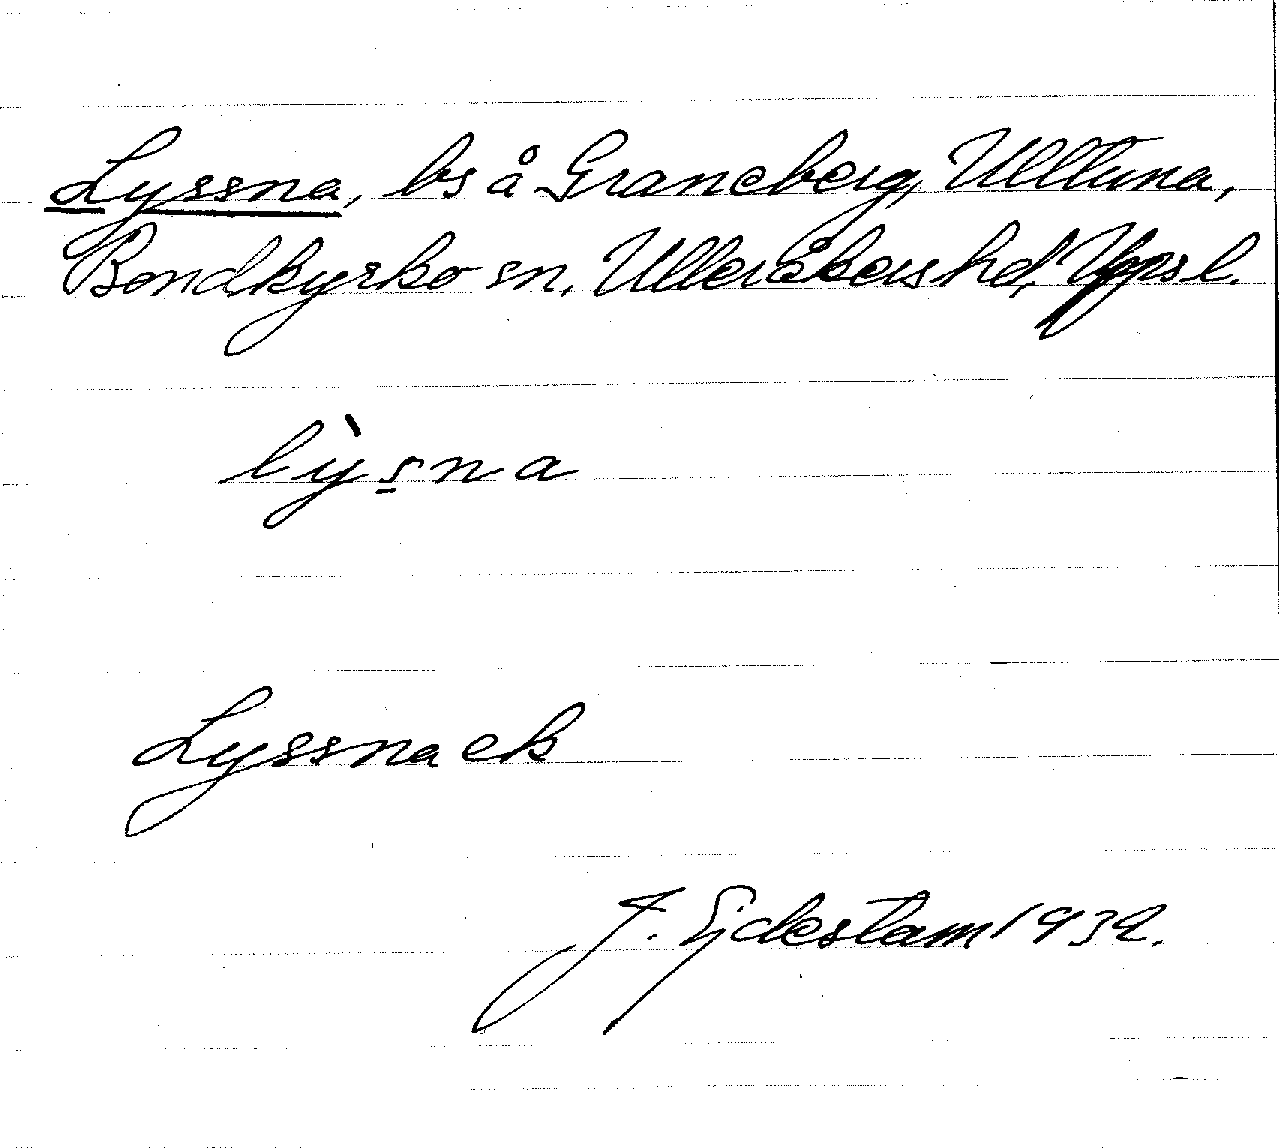 Lyssna, bs å Graneberg, Ulltuna,
Bondkyrko sn, Ulleråkers hd, Uppsl.
lỳs̱na
Lyssnaek
J. Ejdestam 1932.